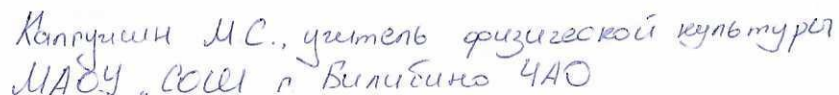 Каплушин М С., учитель физической культуры
МАОУ „СОШ г Билибино ЧАО